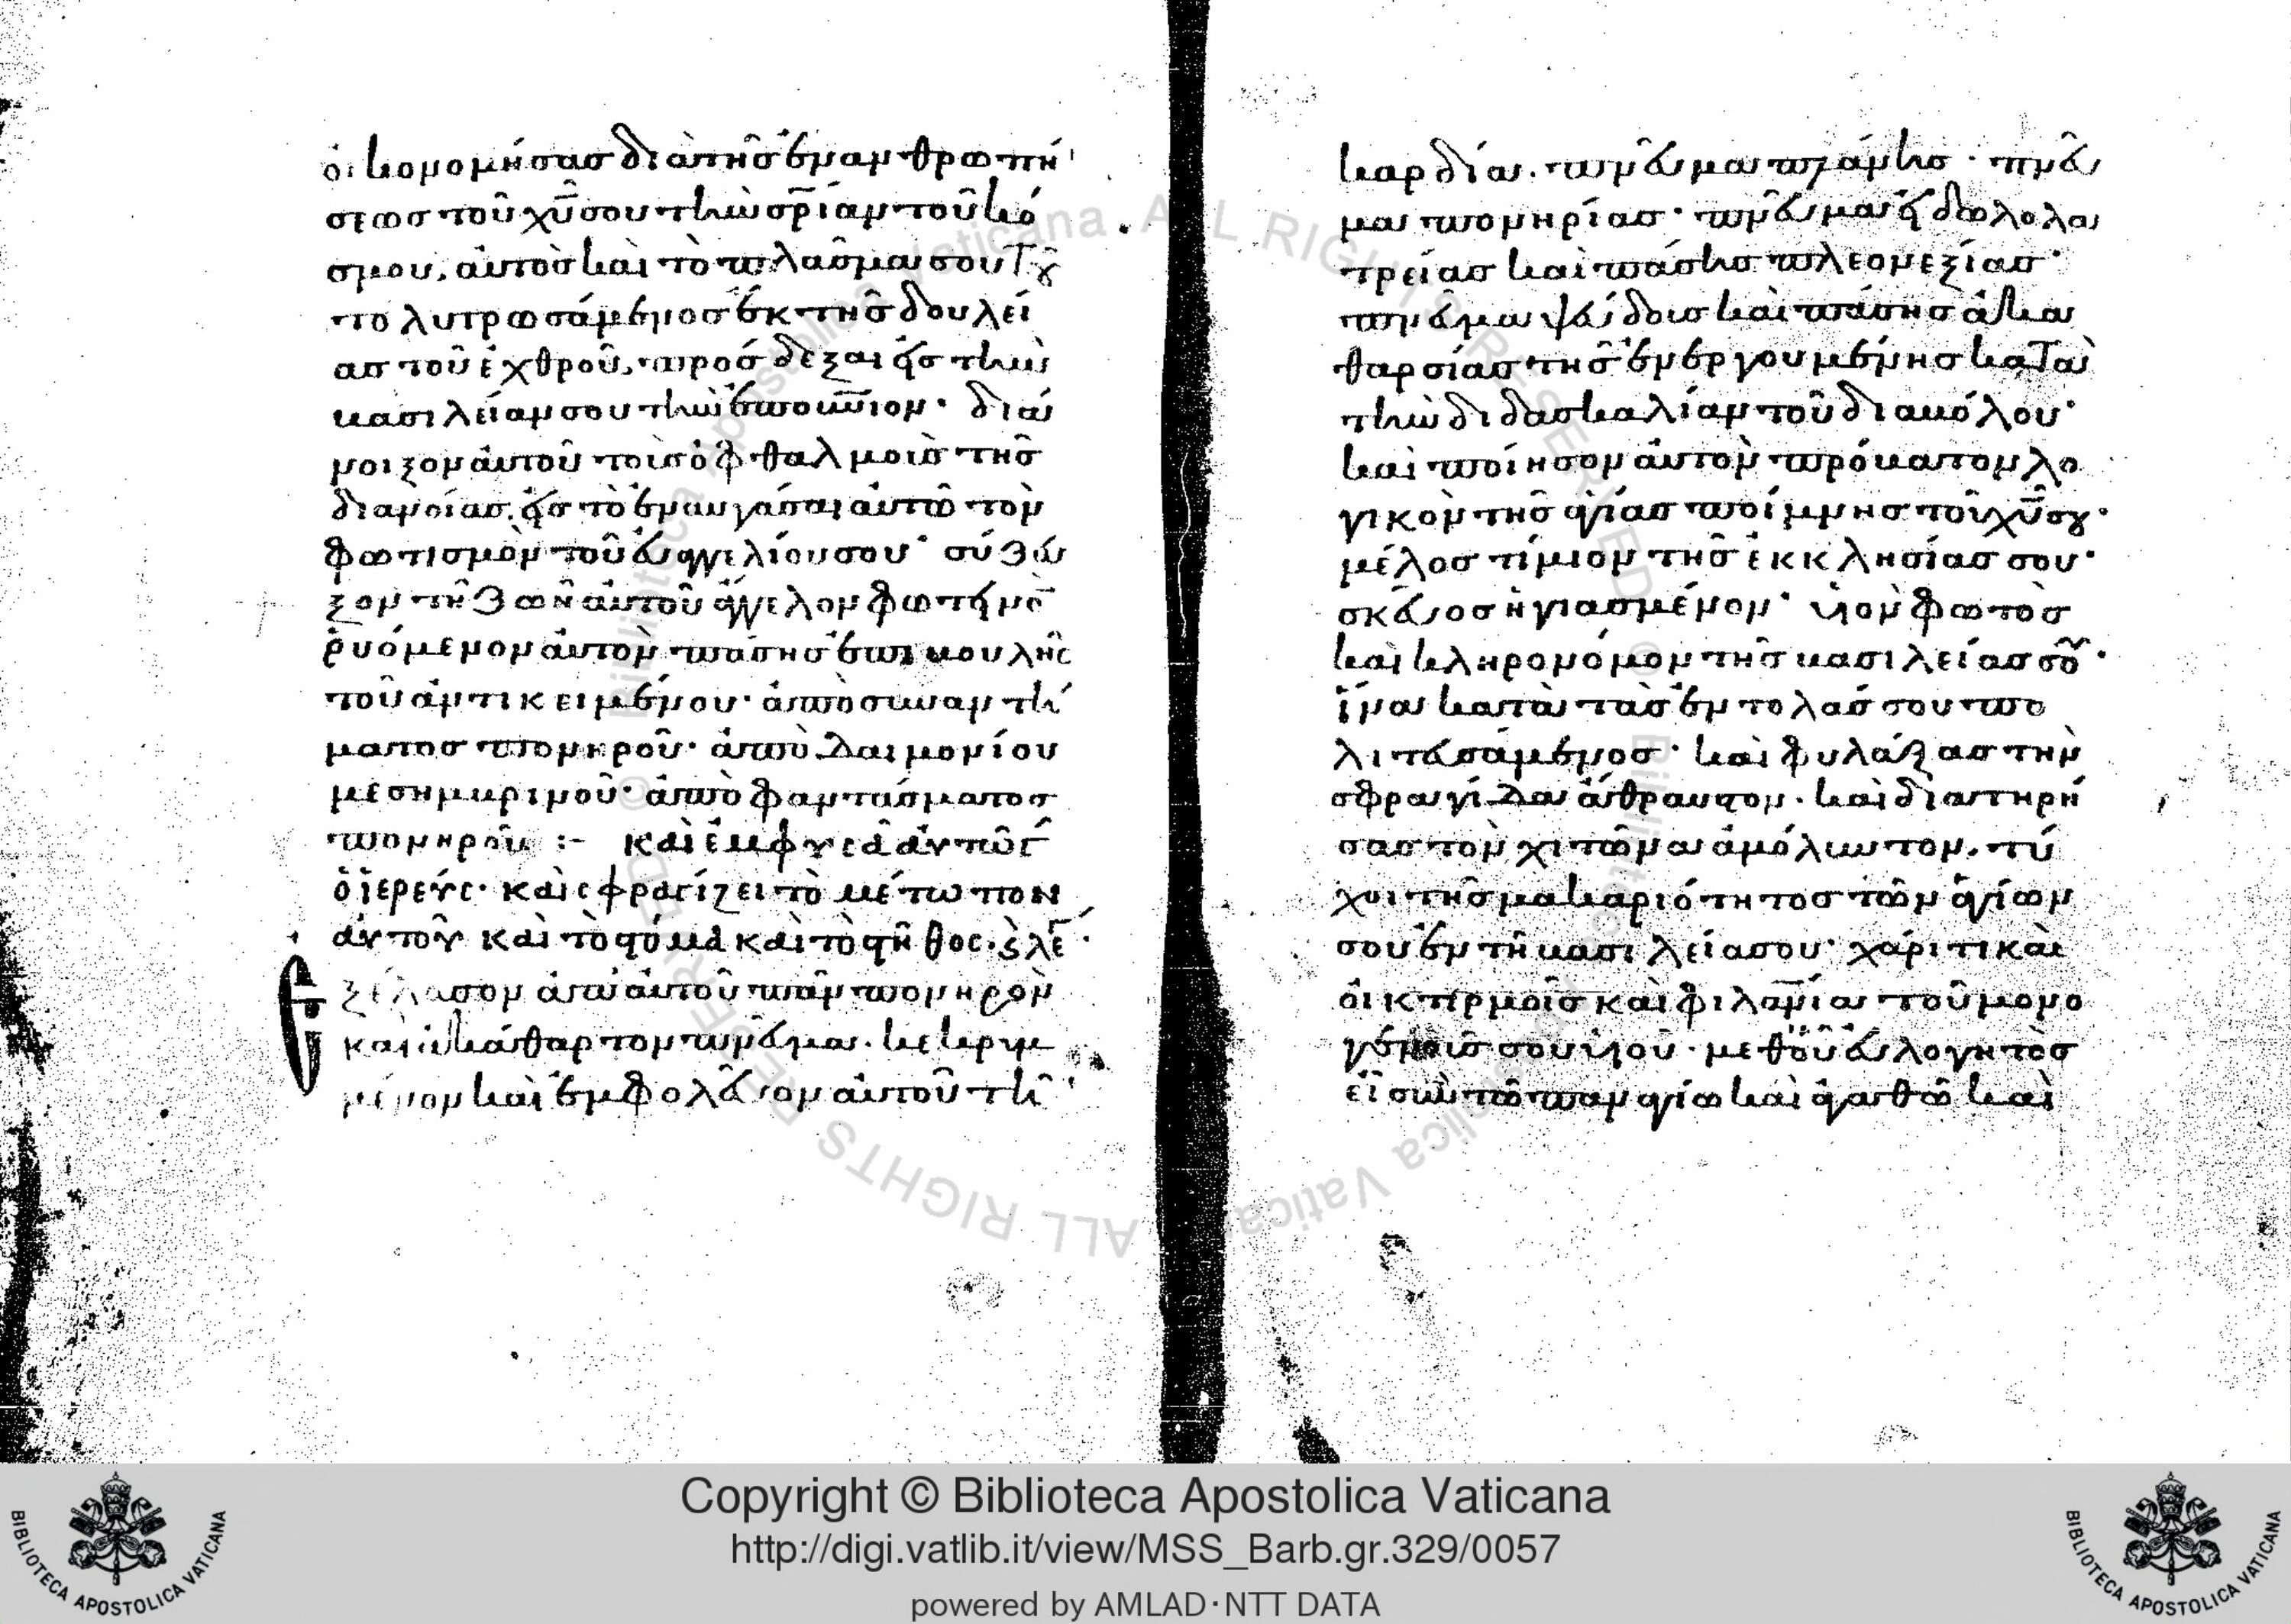 οἰκονομήσας διὰ τῆς ἐνανθρωπή
σεως τοῦ χῦ σου τὴν σρίαν τοῦ κό
σμου, αὐτὸς καὶ τὸ πλάσμα σου τοῦ
το λυτρωσάμενος ἐκ τῆς δουλεί
ας τοῦ ἐχθροῦ, πρόσδεξαι εἰς τὴν
βασιλείαν σου τὴν ἐπουνιον· διά
νοιξον αὐτοῦ τοὺς ὀφθαλμοὺς τῆς
διανοίας, εἰς τὸ ἐναυγάσαι αὐτῶ τὸν
φωτισμὸν τοῦ εὐαγγελίου σου· σύζευ
ξον τῆ ζωῆ αὐτοῦ ἄγγελον φωτεινὸ
ῥυόμενον αὐτὸν πάσης ἐπιβουλῆς
τοῦ ἀντικειμένου· ἀπὸ συναντή
ματος πονηροῦ· ἀπὸ δαιμονίου
μεσημβρινοῦ· ἀπὸ φαντάσματος
πονηροῦ :- καὶ ἐμφυσᾶ αὐτῶ γ
ὁ ἱερεύς· καὶ σφραγίζει τὸ μέτωπον
αὐτοῦ καὶ τὸ στόμα καὶ τὸ στῆθος· ϗ λέγ
Ἐξέλασον ἀπ' αὐτοῦ πᾶν πονηρὸν
καὶ ἀκάθαρτον πνεῦμα. κεκρυμ
μένον καὶ ἐμφολεῦον αὐτοῦ τῆ
καρδία. πνεῦμα πλάνης· πνεῦ
μα πονηρίας· πνεῦμα εἰδωλολα
τρείας καὶ πάσης πλεονεξίας·
πνεῦμα ψεύδους καὶ πάσης ἀκα
θαρσίας τῆς ἐνεργουμένης κατὰ
τὴν διδασκαλίαν τοῦ διαβόλου·
καὶ ποίησον αὐτὸν πρόβατον λο
γικὸν τῆς ἁγίας ποίμνης τοῦ χῦ σου·
μέλος τίμιον τῆς ἐκκλησίας σου·
σκεῦος ἡγιασμένον· υἱὸν φωτὸς
καὶ κληρονόμον τῆς βασιλείας σου·
ἵνα κατὰ τὰς ἐντολάς σου πο
λιτευσάμενος· καὶ φυλάξας τὴν
σφραγίδα ἄθραυστον. καὶ διατηρή
σας τὸν χιτῶνα ἀμόλυντον, τύ
χοι τῆς μακαριότητος τῶν ἁγίων
σου ἐν τῆ βασιλεία σου· χάριτι καὶ
οἰκτιρμοῖς καὶ φιλανία τοῦ μονο
γενοῦς σου υἱοῦ· μεθ' οὗ εὐλογητὸς
εἶ σὺν τῶ παναγίω καὶ ἀγαθῶ καὶ
Copyright © Biblioteca Apostolica Vaticana
http://digi.vatlib.it/view/MSS_Barb.gr.329/0057
powered by AMLAD·NTT DATA
BIBLIOTECA APOSTOLICA VATICANA
BIBLIOTECA APOSTOLICA VATICANA